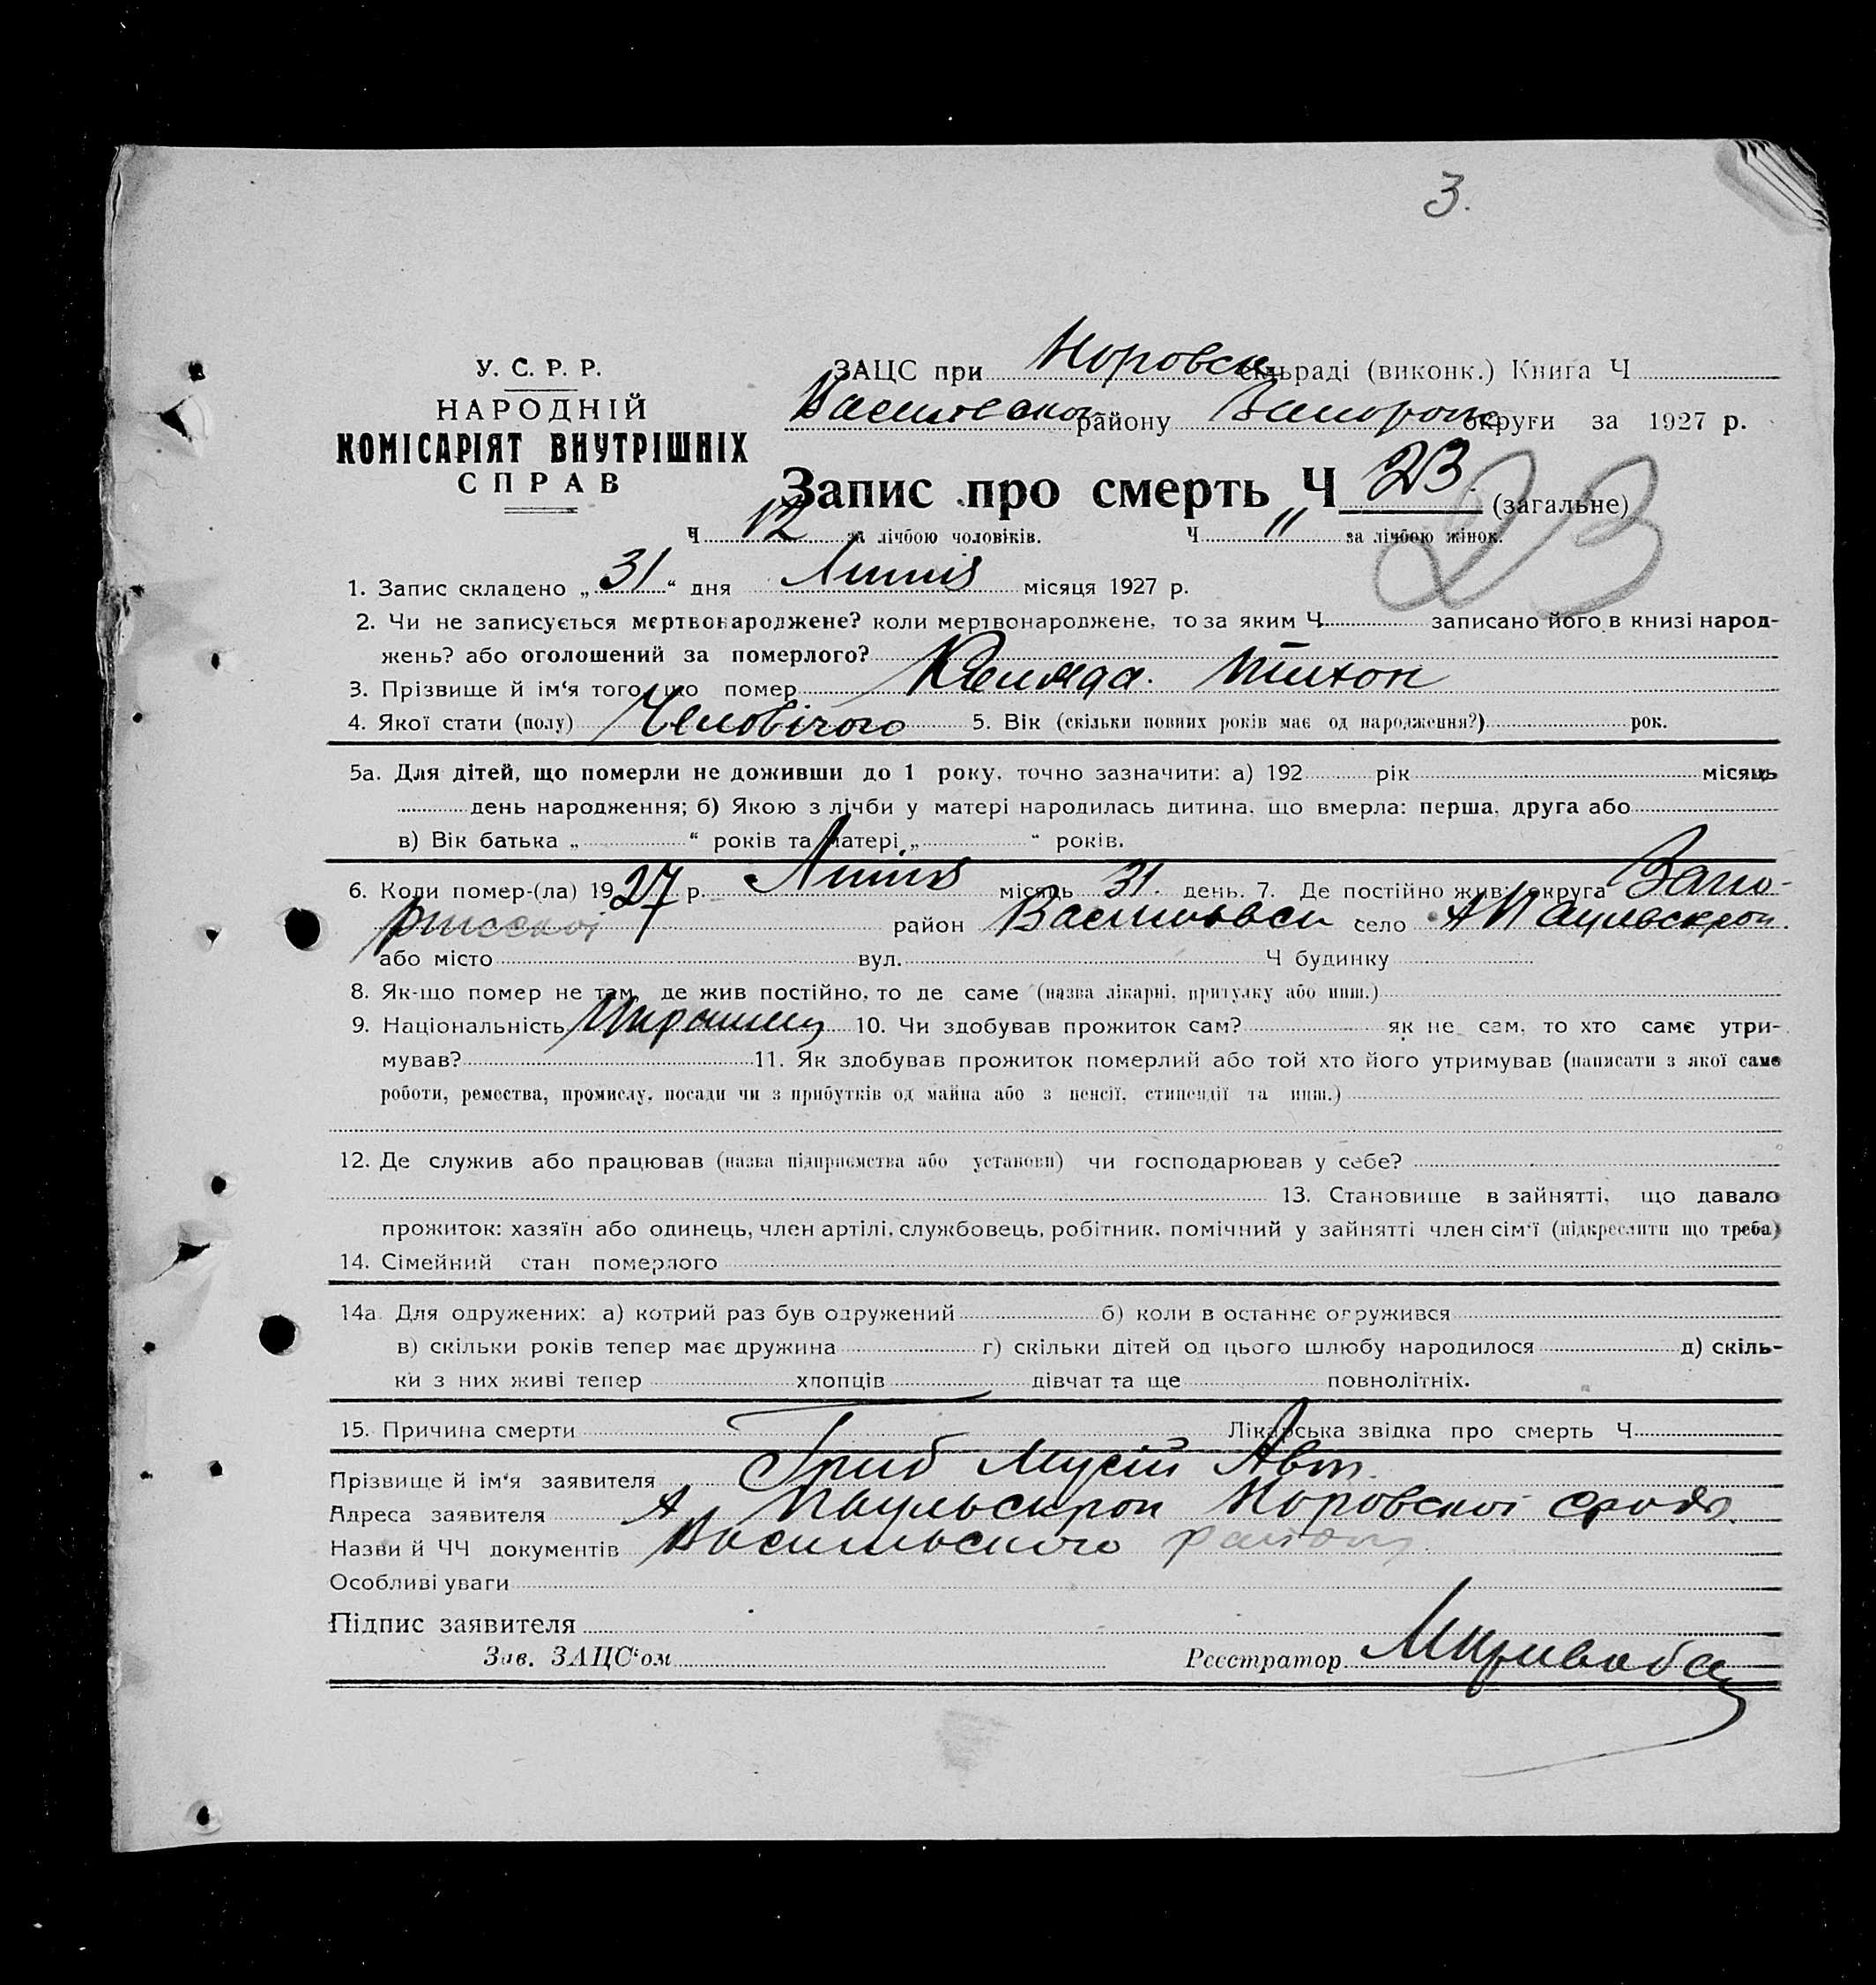 3.
У. С. Р. Р.
НАРОДНІЙ
КОМІСАРІЯТ ВНУТРІШНІХ
СПРАВ
ЗАЦС при сільраді (виконк.) Книга Ч
району округи за 1927 р.
Запис про смерть Ч 23 (загальне)
23
Ч 12 за лічбою чоловіків. Ч " за лічбою жінок.
1. Запис складено „31“ дня Липня місяця 1927 р.
2. Чи не записується мертвонароджене? коли мертвонароджене, то за яким Ч записано його в книзі народ-
жень? або оголошений за померлого?
3. Прізвище й ім‘я того, що помер Тихон
4. Якої стати (полу) Человічого 5. Вік (скільки повних років має од народження?) рок.
5а. Для дітей, що померли не доживши до 1 року, точно зазначити: а) 192 рік місяць
день народження; б) Якою з лічби у матері народилась дитина, що вмерла: перша, друга або
в) Вік батька „ “ років та матері „ “ років.
6. Коли помер-(ла) 1927 р. Липня місяць 31. день. 7. Де постійно жив: округа Запо-
район село
або місто вул. Ч будинку
8. Як-що помер не там, де жив постійно, то де саме (назва лікарні, притулку або инш.)
9. Національність 10. Чи здобував прожиток сам? як не сам, то хто саме утри-
мував? 11. Як здобував прожиток померлий або той хто його утримував (написати з якої саме
роботи, ремества, промислу, посади чи з прибутків од майна або з пенсії, стипендії та инш.)
12. Де служив або працював (назва підприємства або установи) чи господарював у себе?
13. Становище в зайнятті, що давало
прожиток: хазяїн або одинець, член артілі, службовець, робітник, помічний у зайнятті член сім‘ї (підкреслити що треба)
14. Сімейний стан померлого
14а. Для одружених: а) котрий раз був одружений б) коли в останнє одружився
в) скільки років тепер має дружина г) скільки дітей од цього шлюбу народилося д) скіль-
ки з них живі тепер хлопців дівчат та ще повнолітніх.
15. Причина смерти Лікарська звідка про смерть Ч
Прізвище й ім‘я заявителя Гриб Мусій Авт.
Адреса заявителя
Назви й ЧЧ документів району
Особливі уваги
Підпис заявителя
Зав. ЗАЦС‘ом Реєстратор